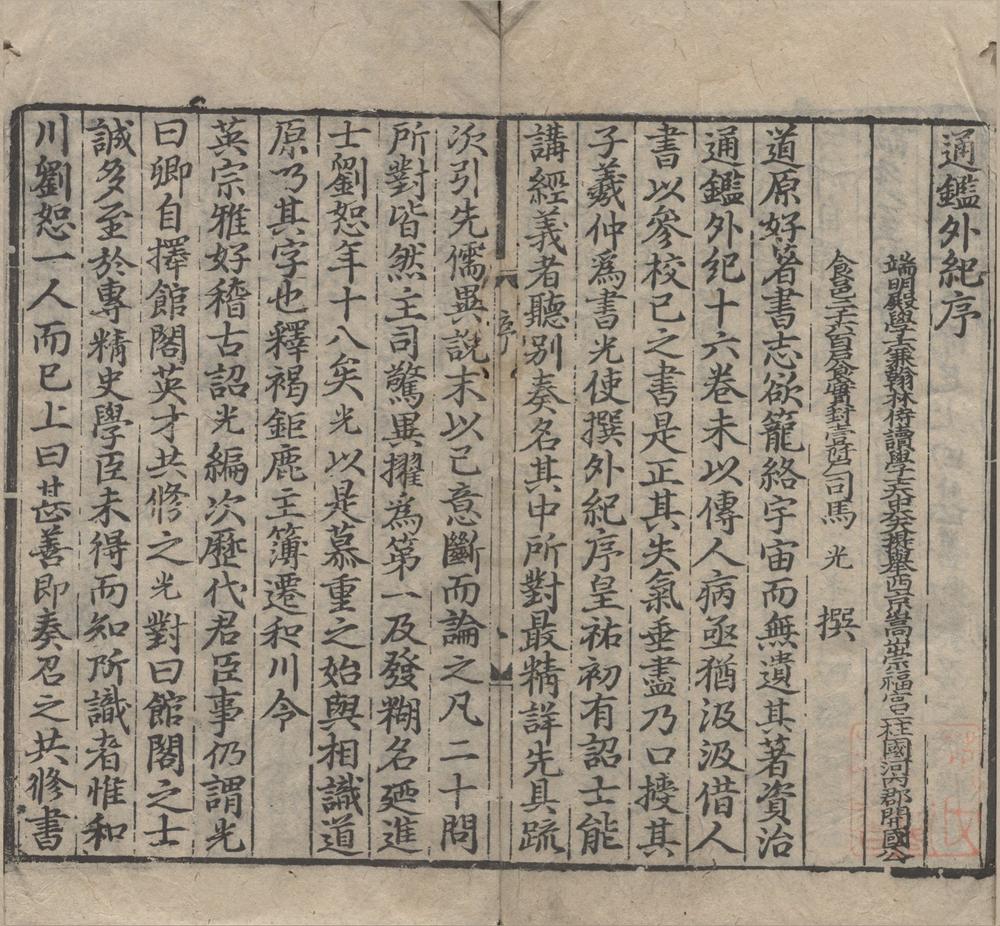 通鑑外紀序
端明殿學士兼翰林侍讀學士太中大夫提舉西京嵩山崇福宮上柱國河內郡開國公
食邑二千六百戶食實封壹阡戶司馬光撰
道原好著書志欲籠絡宇宙而無遺其著資治
通鑑外紀十六卷未以傳人病亟猶汲汲借人
書以參校己之書是正其失氣垂盡乃口授其
子羲仲為書光使撰外紀序皇祐初有詔士能
講經義者聽別奏名其中所對最精詳先具疏
序
次引先儒異說末以己意斷而論之凡二十問
所對皆然主司驚異擢為第一及發糊名廼進
士劉恕年十八矣光以是慕重之始與相識道
原乃其字也釋褐鉅鹿主簿遷和川令
英宗雅好稽古詔光編次歷代君臣事仍謂光
曰卿自擇館閣英才共修之光對曰館閣之士
誠多至於專精史學臣未得而知所識者惟和
川劉恕一人而已上曰甚善即奏召之共修書